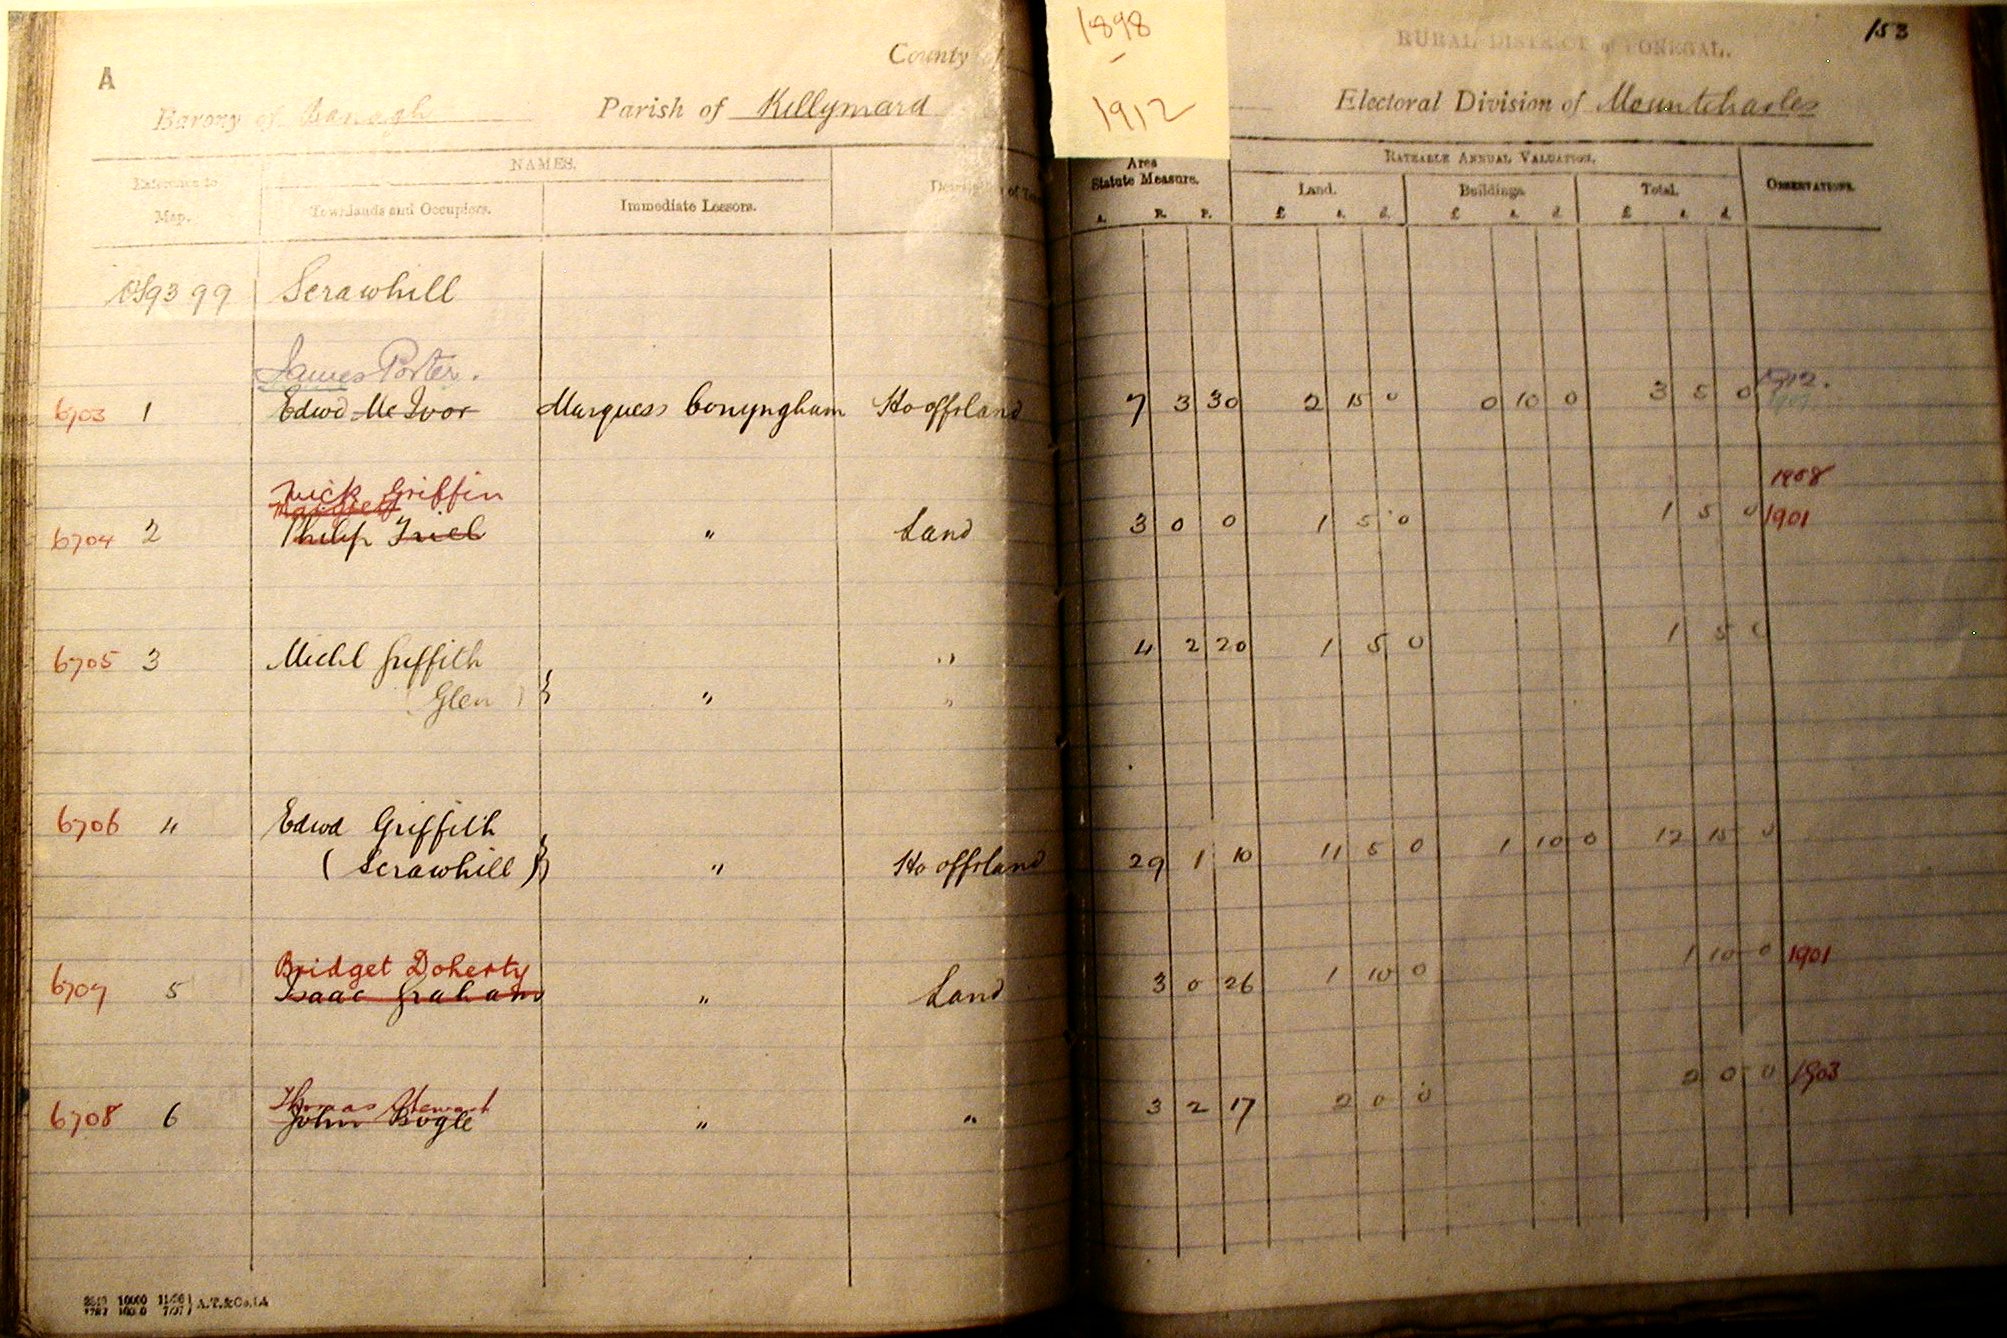 A
County of
Barony of Banagh
Parish of Killymard
1898
1912
RURAL DISTRICT of DONEGAL.
153
Electoral Division of Mountcharles
Reference to Map.
NAMES.
Townlands and Occupiers.
Immediate Lessors.
Description of Ten
Area Statute Measure.
A. R. P.
RATEABLE ANNUAL VALUATION.
Land.
£ s. d.
Buildings.
£ s. d.
Total.
£ s. d.
OBSERVATIONS.
OS 93 99 Scrawhill
James Porter.
6703 1 Edwd McIvor Marquess Conyngham Ho offs land 7 3 30 2 15 0 0 10 0 3 5 0 1912.
Griffin 1908
Margret
6704 2 Philip Friel " Land 3 0 0 1 5 0 1 5 0 1901
6705 3 Michl Griffith " 4 2 20 1 5 0 1 5 0
(Glen) } " "
6706 4 Edwd Griffith
(Scrawhill) } " Ho offs land 29 1 10 11 5 0 1 10 0 12 15 0
Bridget Doherty
6707 5 Isaac Graham " Land 3 0 26 1 10 0 1 10 0 1901
Thomas Stewart
6708 6 John Bogle " " 3 2 17 2 0 0 2 0 0 1903
A.T.&Co.Ld